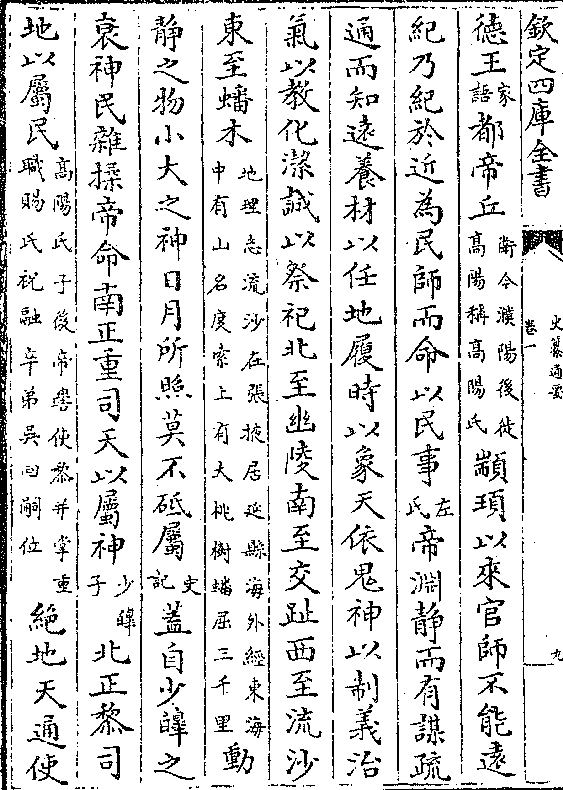 欽定四庫全書
史纂通要
卷一
九
德王家語都帝丘衛今濮陽後徙高陽稱高陽氏顓頊以來官師不能遠
紀乃紀於近為民師而命以民事左氏帝淵静而有謀疏
通而知遠養材以任地履時以象天依鬼神以制義治
氣以教化潔誠以祭祀北至幽陵南至交趾西至流沙
東至蟠木地理志流沙在張掖居延縣海外經東海中有山名度索上有大桃樹蟠屈三千里動
静之物小大之神日月所照莫不砥屬史記蓋自少皥之
衰神民雜揉帝命南正重司天以屬神少皥子北正黎司
地以屬民高陽氏子後帝嚳使黎并掌重職賜氏祝融卒弟吳回嗣位絶地天通使